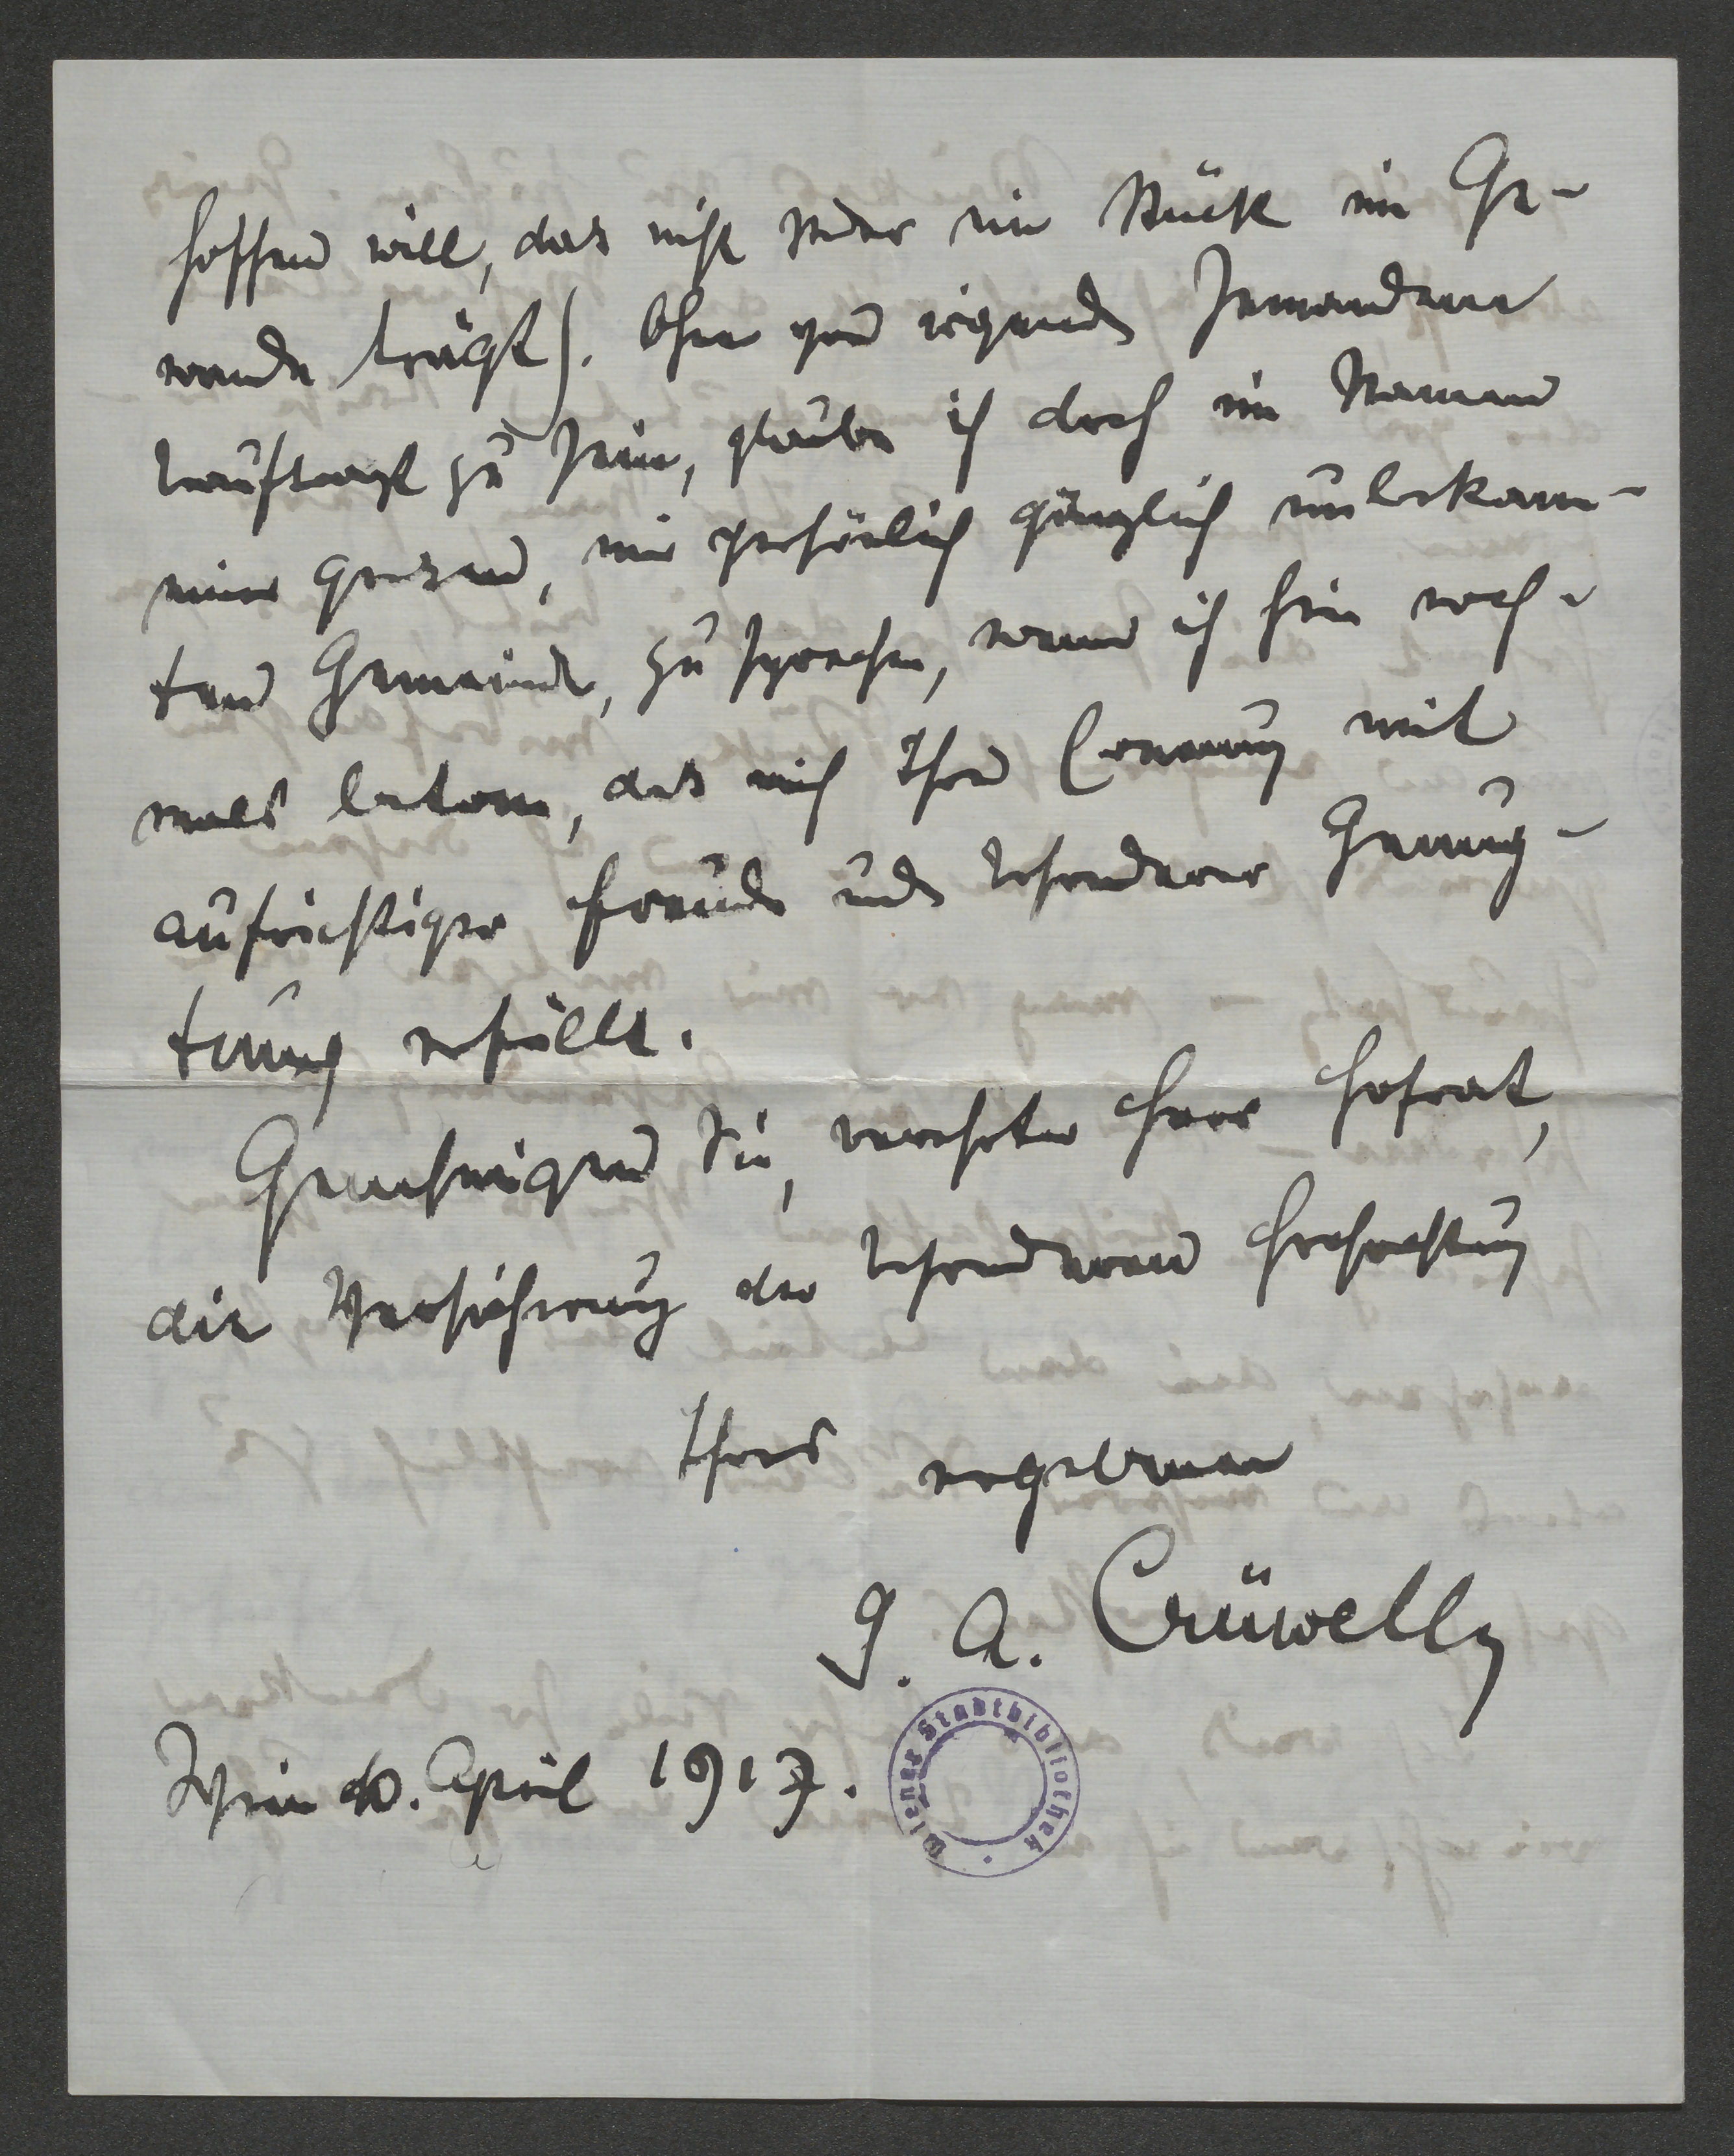 hoffen will, das nicht Jeder ein Stück im Ge-
wande trägt). Ohne von irgend Jemandem
beauftragt zu sein, glaube ich doch im Namen
einer grossen, mir persönlich gänzlich unbekann-
ten Gemeinde, zu sprechen, wenn ich hier noch-
mals betone, das mich Ihre Ernennung mit
aufrichtiger Freude und besonderer Genug-
tuung erfüllt.
Genehmigen Sie, verehrter Herr Hofrat,
die Versicherung der besonderen Hochachtung
Ihres ergebenen
G. A. Crüwell
Wien 10. April 1917.
Wiener Stadtbibliothek